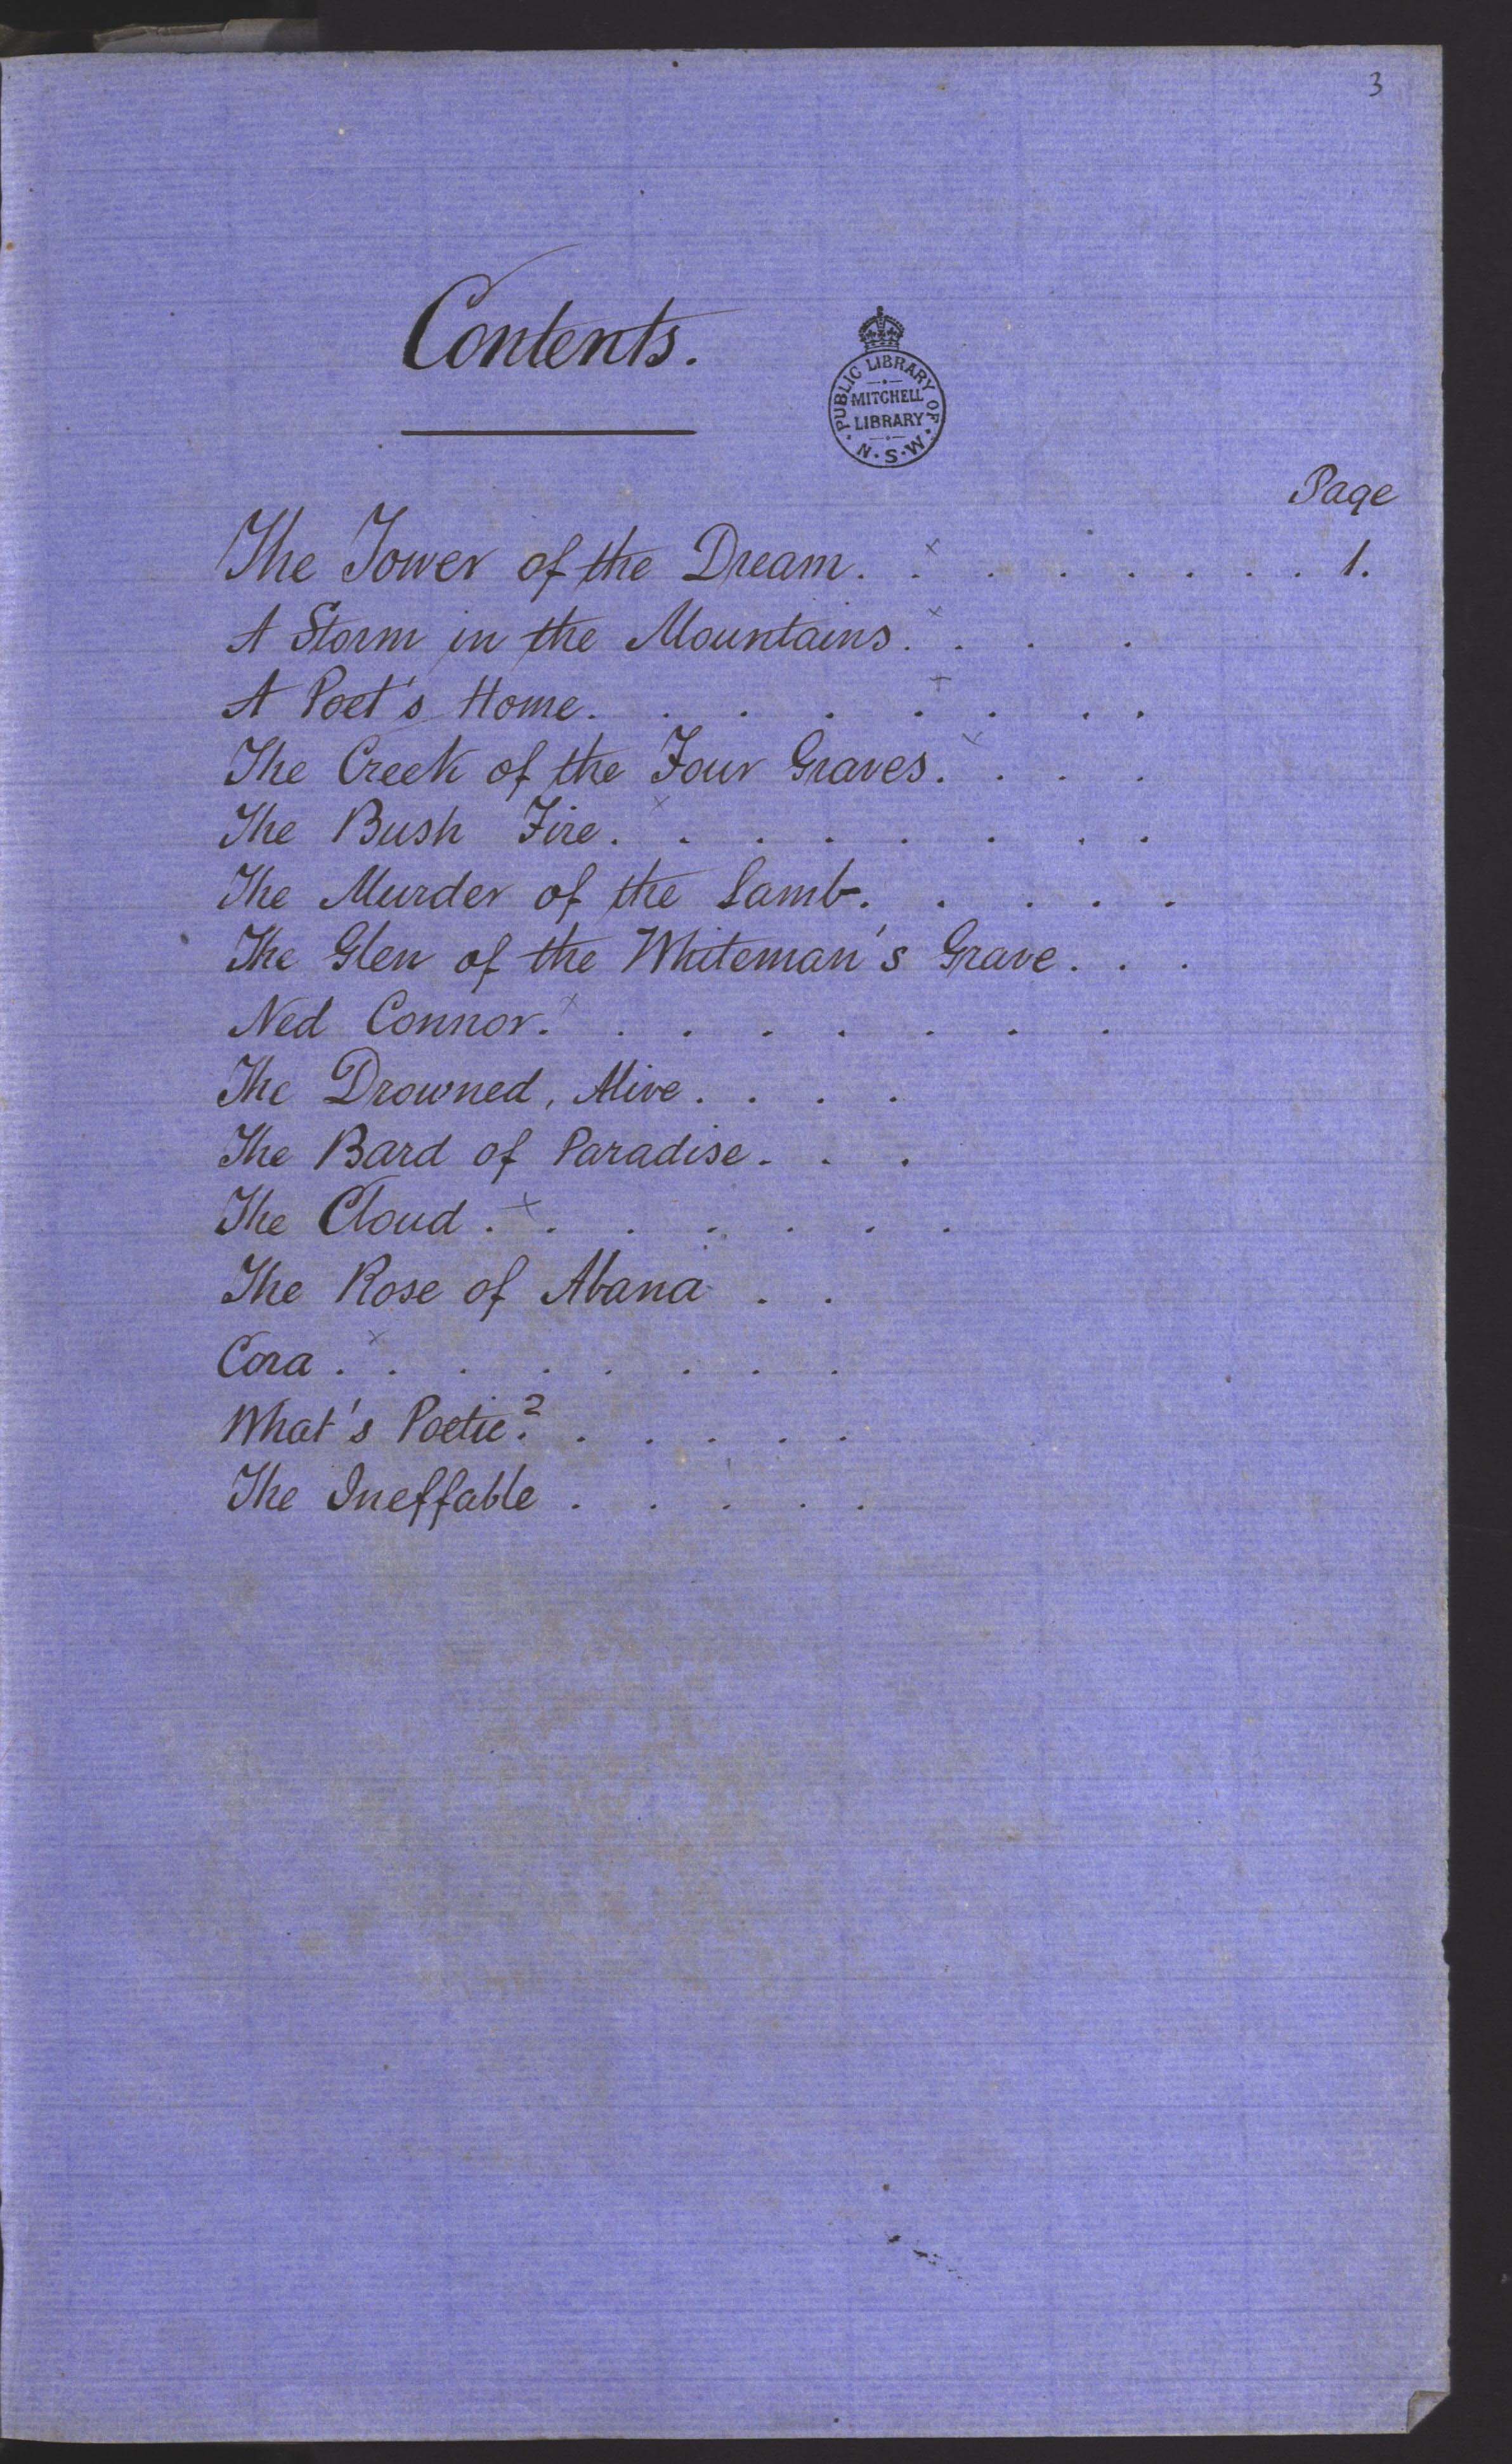 3
Contents.
PUBLIC LIBRARY OF
MITCHELL
LIBRARY
N.S.W.
Page
The Tower of the Dream. x . . . . . . 1.
A Storm in the Mountains. x . . .
A Poet's Home. . . . . + . . . .
The Creek of the Four Graves. x . . .
The Bush Fire. x . . . . . . .
The Murder of the Lamb. . . . .
The Glen of the Whiteman's Grave. . .
Ned Connor. x . . . . . . .
The Drowned, Alive. . . .
The Bard of Paradise. . .
The Cloud. + . . . . . .
The Rose of Abana . .
Cora. x . . . . . . .
What's Poetic? . . . . .
The Ineffable . . . . .